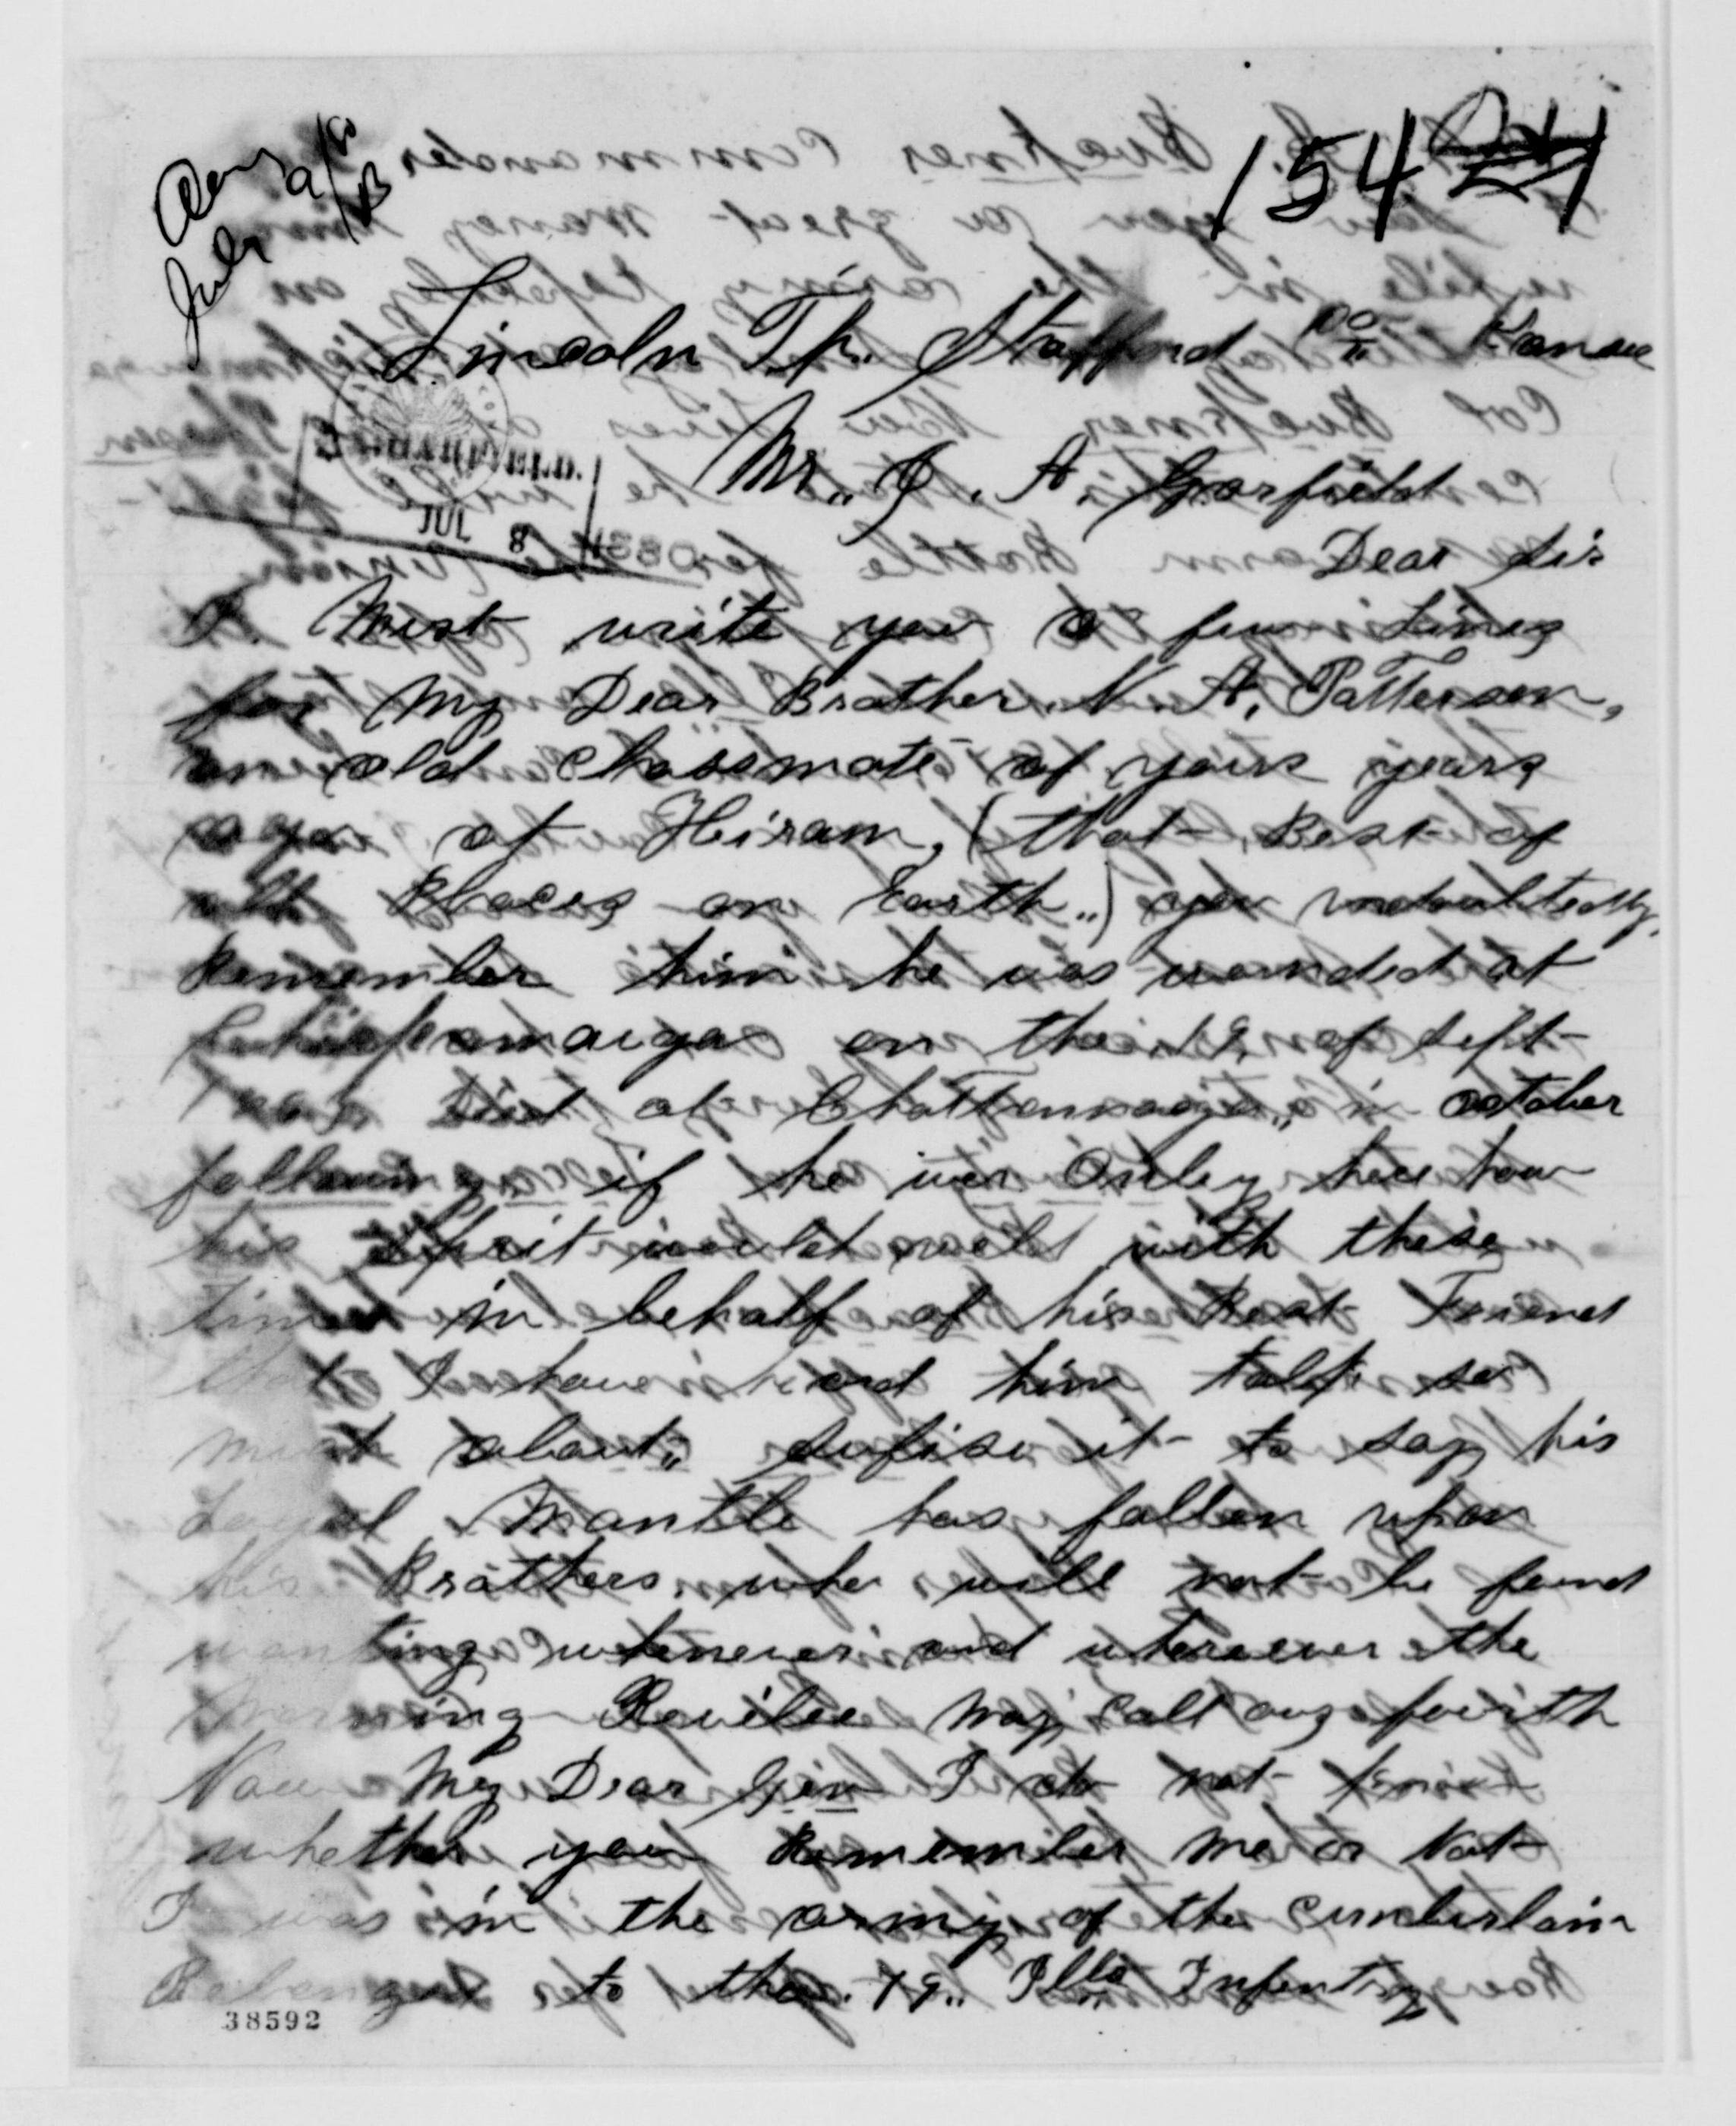 Ans
July 9/80
B
154
Lincoln Tp. Stafford Co Kansas
J. A. GARFIELD.
JUL 8 1880
Mr. J. A. Garfield
Dear Sir
I Must write you a few Lines
for My Dear Brother N. A. Patterson,
an old Classmate of yours years
ago at Hiram, (that Best of
all Places on Earth..) you undoubtedly
Remember him he was wounded at
on the 19. of Sept
and Died at Chattannooga,, in october
following. if he wer Onley here how
his Spirit would with these
times in behalf of his Best Friend
that I have heard him talk so
much about,, sufise it to say his
Loyal Mantle has fallen upon
his Brothers. who will not be found
wanting whenever and whereever the
morning Revilee may call ous fourth
Now My Dear Gen I do not know
whether you Remember me or Not
I was in the army of the Cumberlain
Belonged to the. 19.. Ills Infentry
38592